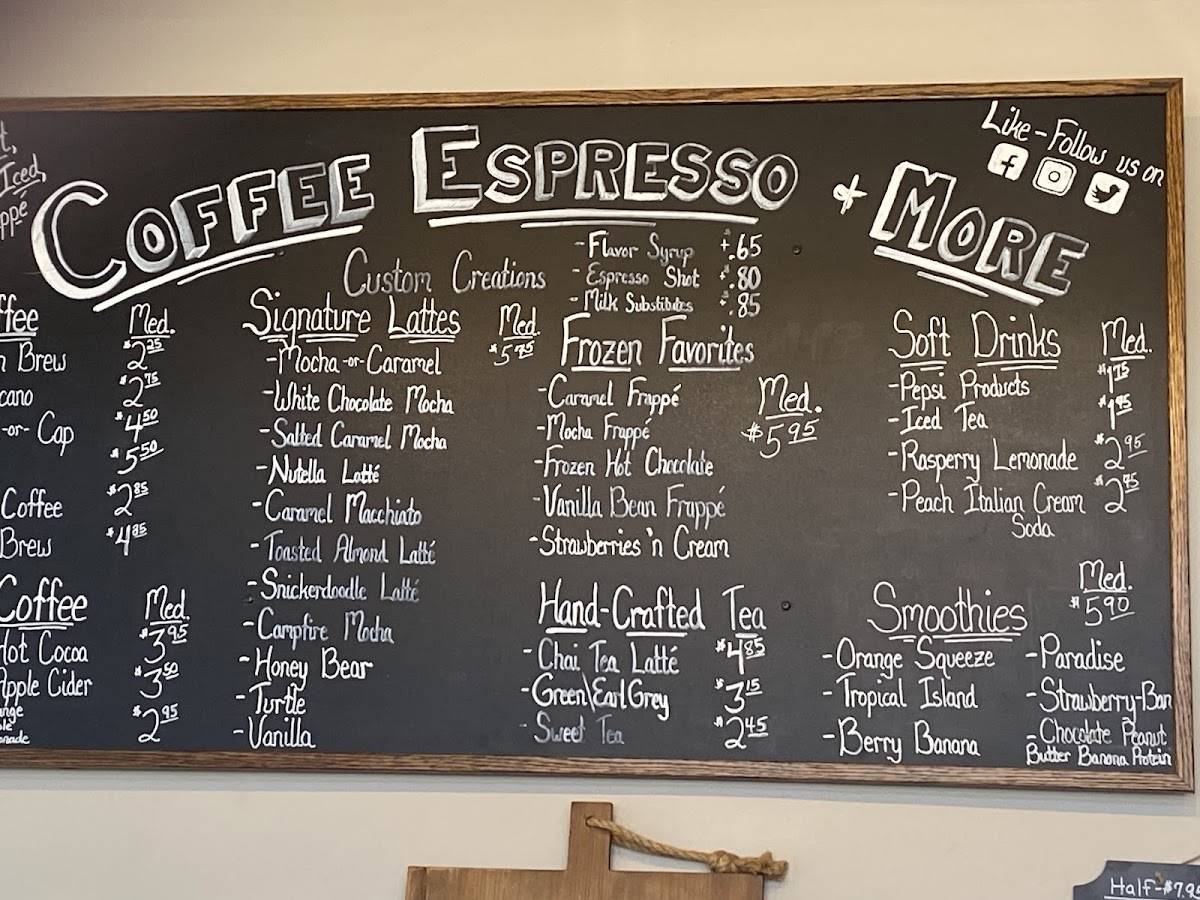 Iced,
COFFEE ESPRESSO & MORE
Like-Follow us on
Custom Creations
-Flavor Syrup +.65
-Espresso Shot +.80
-Milk Substitutes +.85
Med.
Brew $2.25
$2.75
-or- Cap $4.50
$5.50
Coffee $2.85
Brew $4.85
Coffee Med.
Hot Cocoa $3.95
Apple Cider $3.50
$2.95
Signature Lattes Med.
$5.75
-Mocha -or- Caramel
-White Chocolate Mocha
-Salted Caramel Mocha
-Nutella Latté
-Caramel Macchiato
-Toasted Almond Latté
-Snickerdoodle Latté
-Campfire Mocha
-Honey Bear
-Turtle
-Vanilla
Frozen Favorites
Med.
$5.95
-Caramel Frappé
-Mocha Frappé
-Frozen Hot Chocolate
-Vanilla Bean Frappé
-Strawberries 'n Cream
Hand-Crafted Tea
-Chai Tea Latté $4.85
-Green\Earl Grey $3.15
-Sweet Tea $2.45
Soft Drinks Med.
-Pepsi Products $1.75
-Iced Tea $1.95
-Rasperry Lemonade $2.95
-Peach Italian Cream $2.75
Soda
Smoothies Med.
$5.90
-Orange Squeeze
-Tropical Island
-Berry Banana
-Paradise
-Strawberry-Ban
-Chocolate Peanut
Butter Banana Protein
Half-$7.95